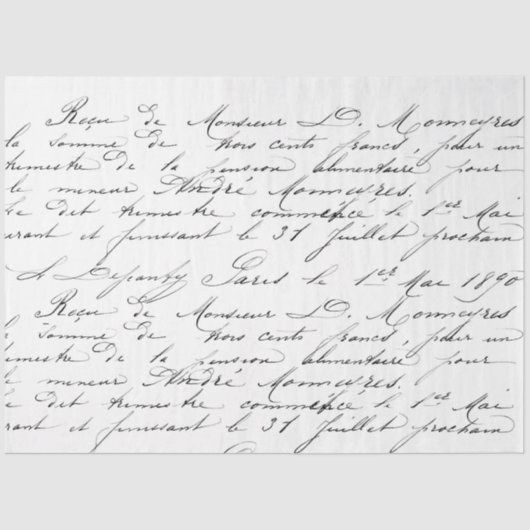 Reçu de Monsieur D. Monneyres
la somme de trois cents francs, pour un
trimestre de la pension alimentaire pour
le mineur André Monneyres.
Le dit trimestre commencé le 1er Mai
urant et finissant le 31 Juillet prochain
Paris le 1er Mai 1890
Reçu de Monsieur D. Monneyres
la somme de trois cents francs, pour un
imestre de la pension alimentaire pour
le mineur André Monneyres.
e dit trimestre commencé le 1er Mai
rant et finissant le 31 Juillet prochain